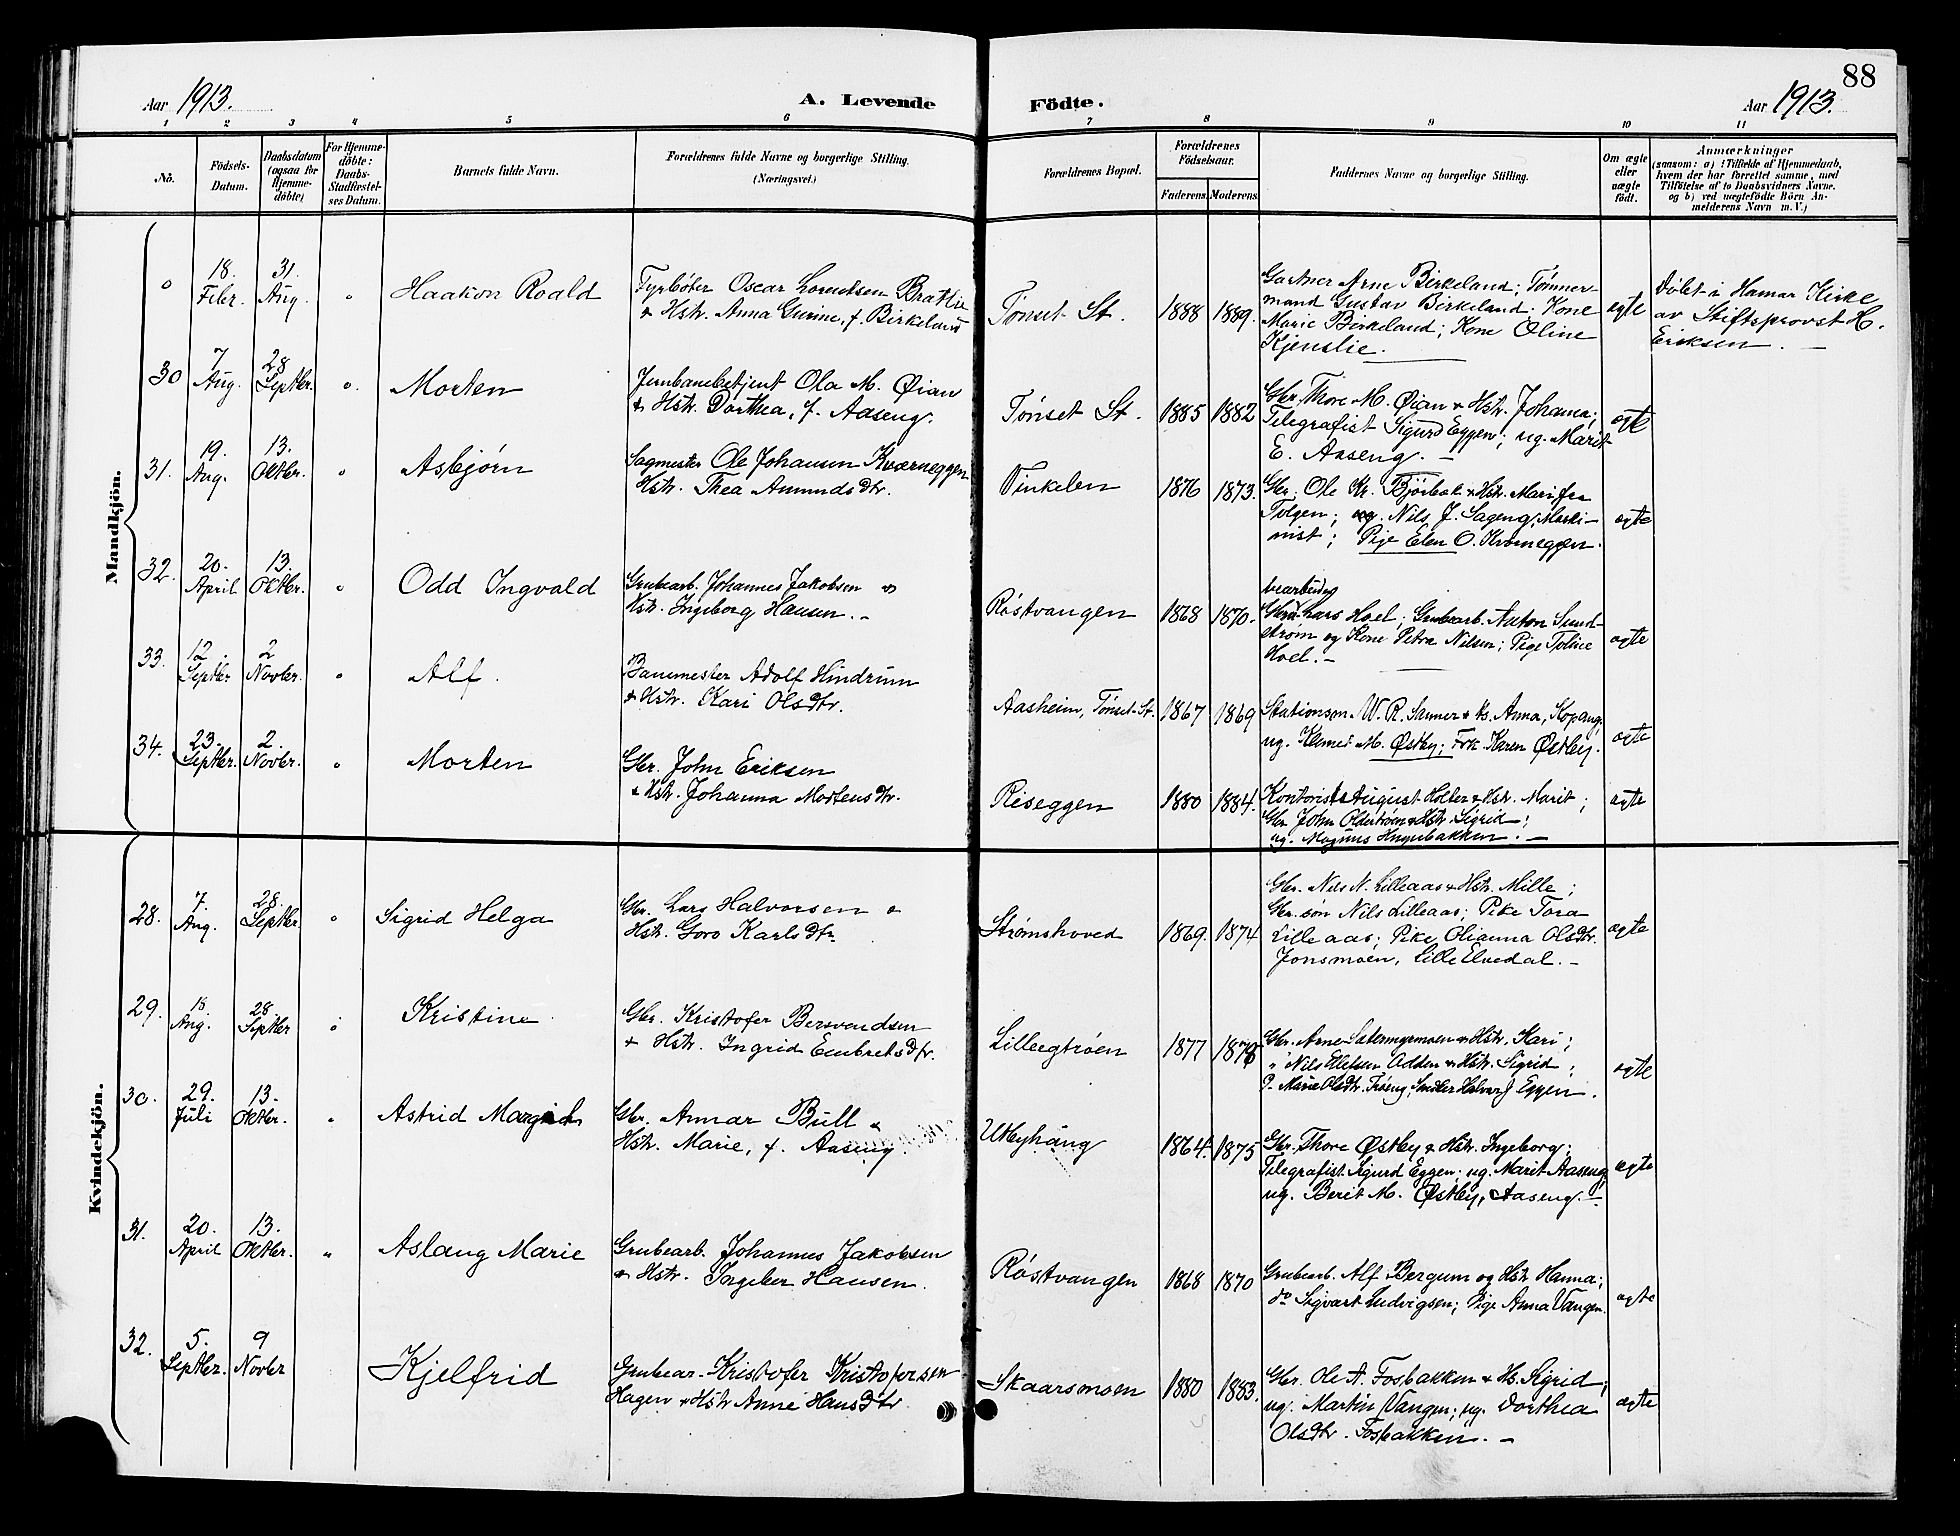 88
Aar 1913.
A. Levende Födte.
Aar 1913.
1 2 3 4 5 6 7 8 9 10 11
No.
Födsels-
Datum.
Daabsdatum
(ogsaa for
Hjemme-
döbte)
For Hjemme-
döbte:
Daabs-
Stadfæstel-
ses Datum.
Barnets fulde Navn.
Forældrenes fulde Navne og borgerlige Stilling.
(Næringsvei.)
Forældrenes Bopæl.
Forældrenes
Födselsaar.
Faderens. Moderens.
Faddernes Navne og borgerlige Stilling.
Om ægte
eller
uægte
födt.
Anmærkninger
(saasom: a) i Tilfælde af Hjemmedaab,
hvem der har forrettet samme, med
Tilföielse af to Daabsvidners Navne.
og b) ved uægtefödte Börn An-
melderens Navn m. V.)
Mandkjön.
18.
Febr.
31.
Aug.
Haakon Roald
Fyrböter Oscar Lorentsen Bratlie
& Hstr. Anna Gurine, f. Birkeland
Tønset St.
1888 1889.
Gartner Arne Birkeland; Tømmer-
mand Gustav Birkeland. Kone
Marie Birkeland; Kone Oline
Kjenslie.
ægte
Døbt i Hamar Kirke
av Stiftsprovst H.
Eriksen. —
30
7
Aug.
28
Septbr.
Morten
Jernbanebetjent Ola M. Øian
& Hstr. Dorthea, f. Aaseng.
Tønset St.
1885 1882
Gbr. Thore M. Øian & Hstr. Johanna;
Telegrafist Sigurd Eggen; ug. Marit
E. Aaseng. —
ægte
31.
19.
Aug.
13.
Oktbr.
Asbjørn
Sagmester Ole Johansen Kværneggen
Hstr. Thea Amunds dtr.
Vinkelen
1876 1873.
Gbr. Ole Kr. Bjørbæk & Hstr. Mari fra
Tolgen; ug. Nils J. Sageng, Maski-
nist; Pije Elen O. Kværneggen.
ægte
32.
20.
April
13.
Oktbr.
Odd Ingvald
Grubearb. Johannes Jakobsen &
Hstr. Ingeborg Hansen. —
Røstvangen
1868 1870.
Lars Hoel; Grubearb. Anton Sund-
strøm og Kone Petra Nilsen; Pige Toline
Hoel. —
ægte
33.
12.
Septbr.
2
Novbr.
Alf.
Banemester Adolf Hindrum
& Hstr. Kari Olsdtr.
Aasheim, Tønset St.
1867 1869
Stationsm. W. R. Sanner & Hs. Anna, Kopang,
ug. M. Østby; Frk. Karen Østby.
ægte
34.
23.
Septbr.
2.
Novbr.
Morten
Gbr. John Eriksen
& Hstr. Johanna Mortens dtr.
Riseggen
1880 1884.
Kontorist August Holter & Hstr. Marit;
Gbr. John & Hstr. Sigrid;
ug. Magnus
ægte
Kvindekjön.
28.
7.
Aug.
28.
Septbr.
Sigrid Helga
Gbr. Lars Halvorsen &
Hstr. Goro Karls dtr.
Strømshoved
1869. 1874
Gbr. Nils N. Lilleaas & Hstr. Mille;
Gbr. søn Nils Lilleaas; Pike Tora
Lilleaas; Pike Olianna Olsdtr.
Jonsmoen, Lille Elvedal. —
ægte
29.
18
Aug.
28
Septbr
Kristine
Gbr. Kristofer Bersvendsen
& Hstr. Ingrid Embrets dtr.
Lilleegtrøen
1877
Gbr. Arne & Hstr. Kari;
" Nils Adden & Hstr. Sigrid;
P. Marie Olsdtr. Trøeng, Halvor J Eggen.
ægte
30.
29.
Juli
13.
Oktbr.
Astrid Margith
Gbr. Annar Bull &
Hstr. Marie, f. Aaseng.
Utbyhaug
1864. 1875
Gbr. Thore Østby & Hstr. Ingeborg;
Telegrafist Sigurd Eggen; ug. Marit Aaseng;
ug. Berit M. Østby, Aaseng. —
ægte
31.
20.
April
13.
Oktbr.
Aslaug Marie
Grubearb. Johannes Jakobsen
& Hstr. Ingeber Hansen.
Røstvangen
1868 1870
Grubearb. Alf Bergum og Hstr Hanna;
do Sigvart Ludvigsen; Pige Anna Vangen.
ægte
32.
5.
Septbr.
9
Novbr
Kjelfrid
Grubear. Kristofer Kristofersen
Hagen & Hstr Anne Hans dtr
Skaarsmoen
1880 1883.
Gbr. Ole A. Fosbakken & Hs. Sigrid;
ug. Martin Vangen; ug. Dorthea
Olsdtr. Fosbakken. —
ægte